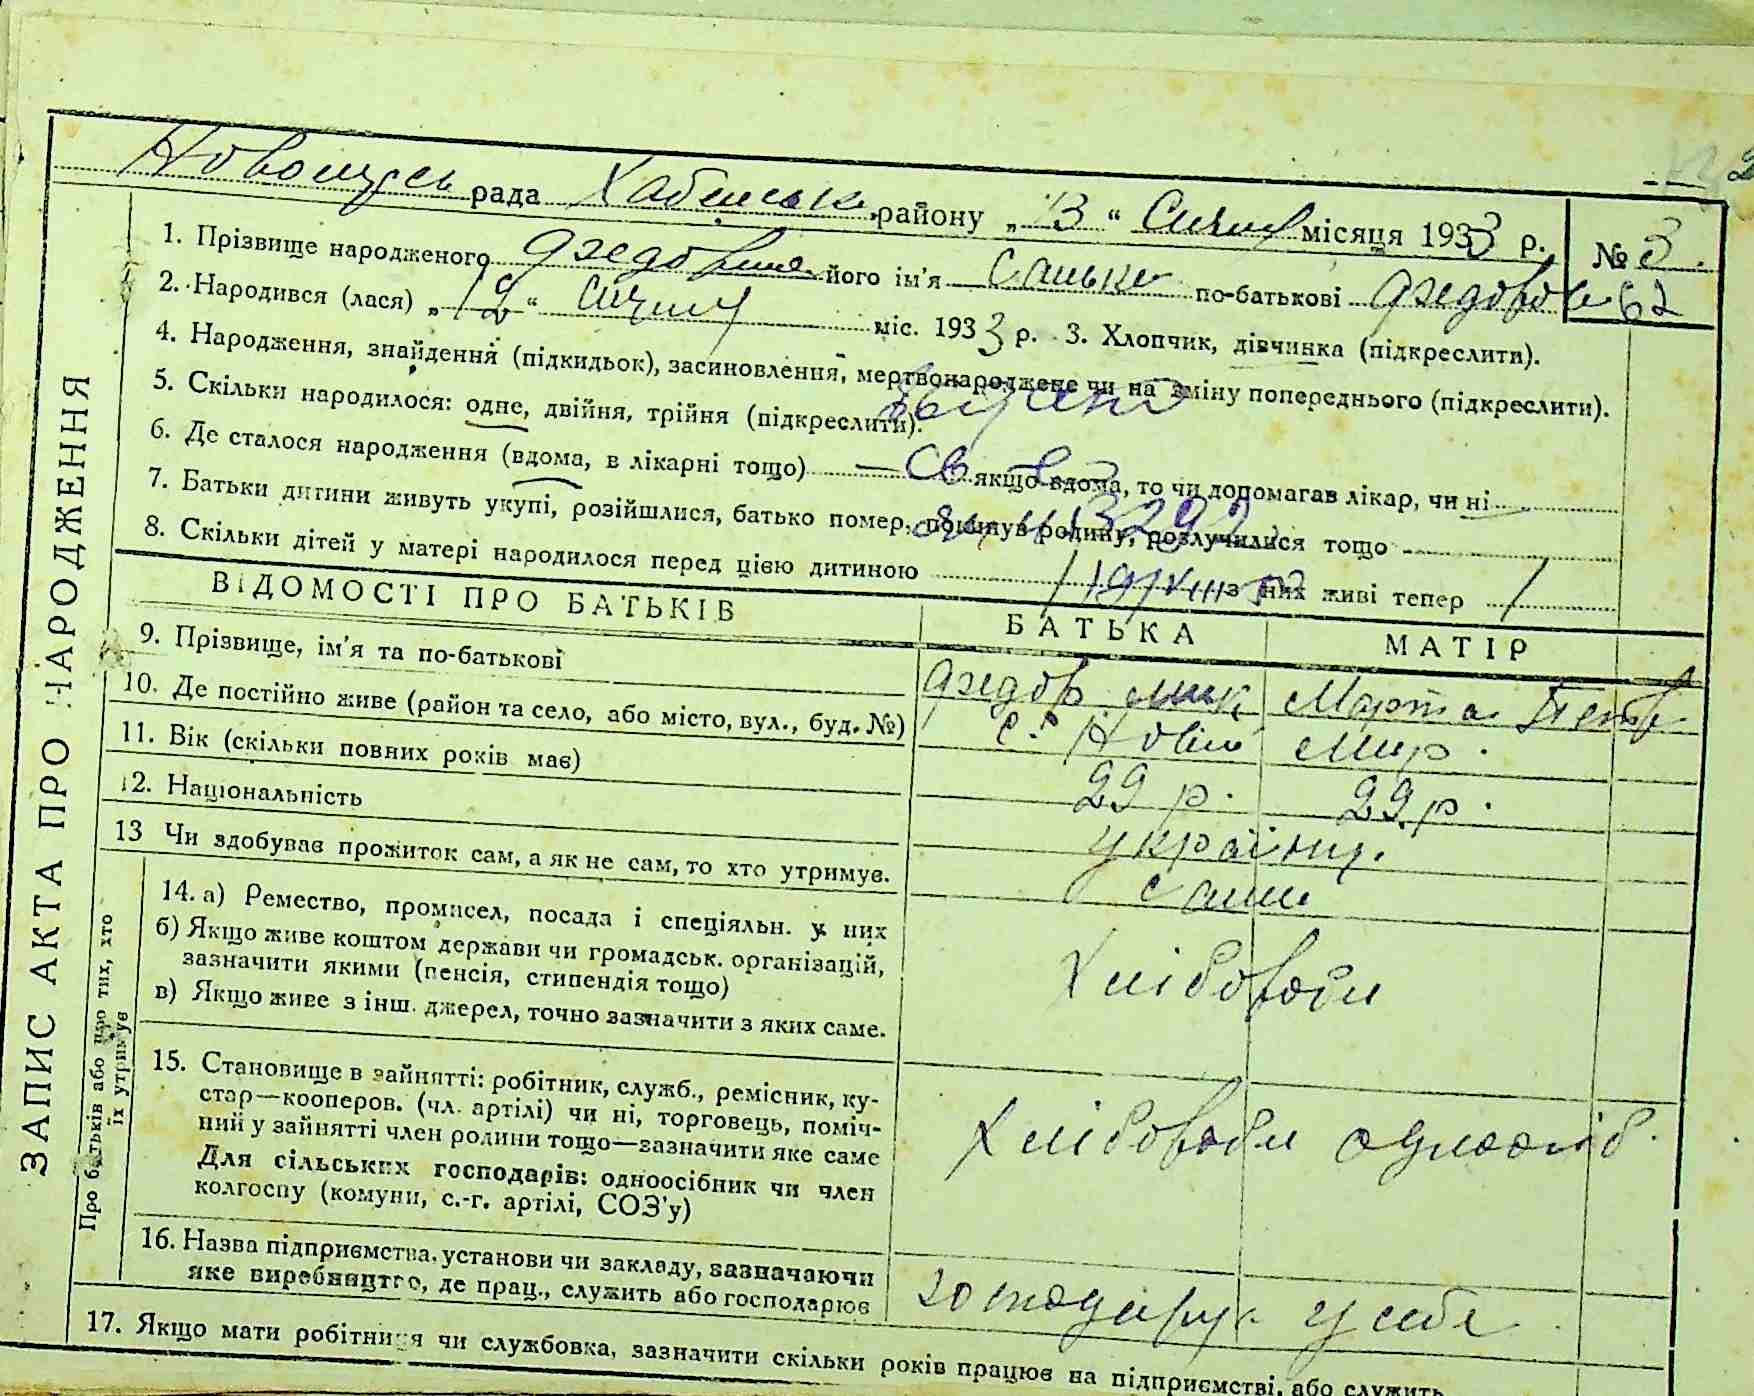 рада Хабенськ. району „13“ Січня місяця 1933 р. № 3
1. Прізвище народженого його ім'я по-батькові
2. Народився (лася) „12“ січня міс. 1933 р. 3. Хлопчик, дівчинка (підкреслити). 62
4. Народження, знайдення (підкидьок), засиновлення, мертвонароджене чи на зміну попереднього (підкреслити).
5. Скільки народилося: одне, двійня, трійня (підкреслити). Видано
6. Де сталося народження (вдома, в лікарні тощо) — Св якщо вдома, то чи допомагав лікар, чи ні
7. Батьки дитини живуть укупі, розійшлися, батько помер, покинув родину, розлучилися тощо
8. Скільки дітей у матері народилося перед цією дитиною 1 з них живі тепер 1
ВІДОМОСТІ ПРО БАТЬКІВ БАТЬКА МАТІР
9. Прізвище, ім'я та по-батькові Федор Мик Марта Петр
10. Де постійно живе (район та село, або місто, вул., буд. №) с. Новий Мир.
11. Вік (скільки повних років має) 29 р. 29 р.
12. Національність українц.
13 Чи здобував прожиток сам, а як не сам, то хто утримує. сами
14. а) Ремество, промисел, посада і спеціяльн. у них
б) Якщо живе коштом держави чи громадськ. організацій,
зазначити якими (пенсія, стипендія тощо) Хлібороби
в) Якщо живе з інш. джерел, точно зазначити з яких саме.
15. Становище в зайнятті: робітник, служб., ремісник, ку-
стар—кооперов. (чл. артілі) чи ні, торговець, поміч-
ний у зайнятті член родини тощо—зазначити яке саме Хлібороби одноосіб.
Для сільських господарів: одноосібник чи член
колгоспу (комуни, с.-г. артілі, СОЗ'у)
16. Назва підприємства, установи чи закладу, зазначаючи
яке виробництво, де прац., служить або господарює господарує у себе
17. Якщо мати робітниця чи службовка, зазначити скільки років працює на підприємстві, або служить
ЗАПИС АКТА ПРО НАРОДЖЕННЯ
Про батьків або про тих, хто
їх утримує